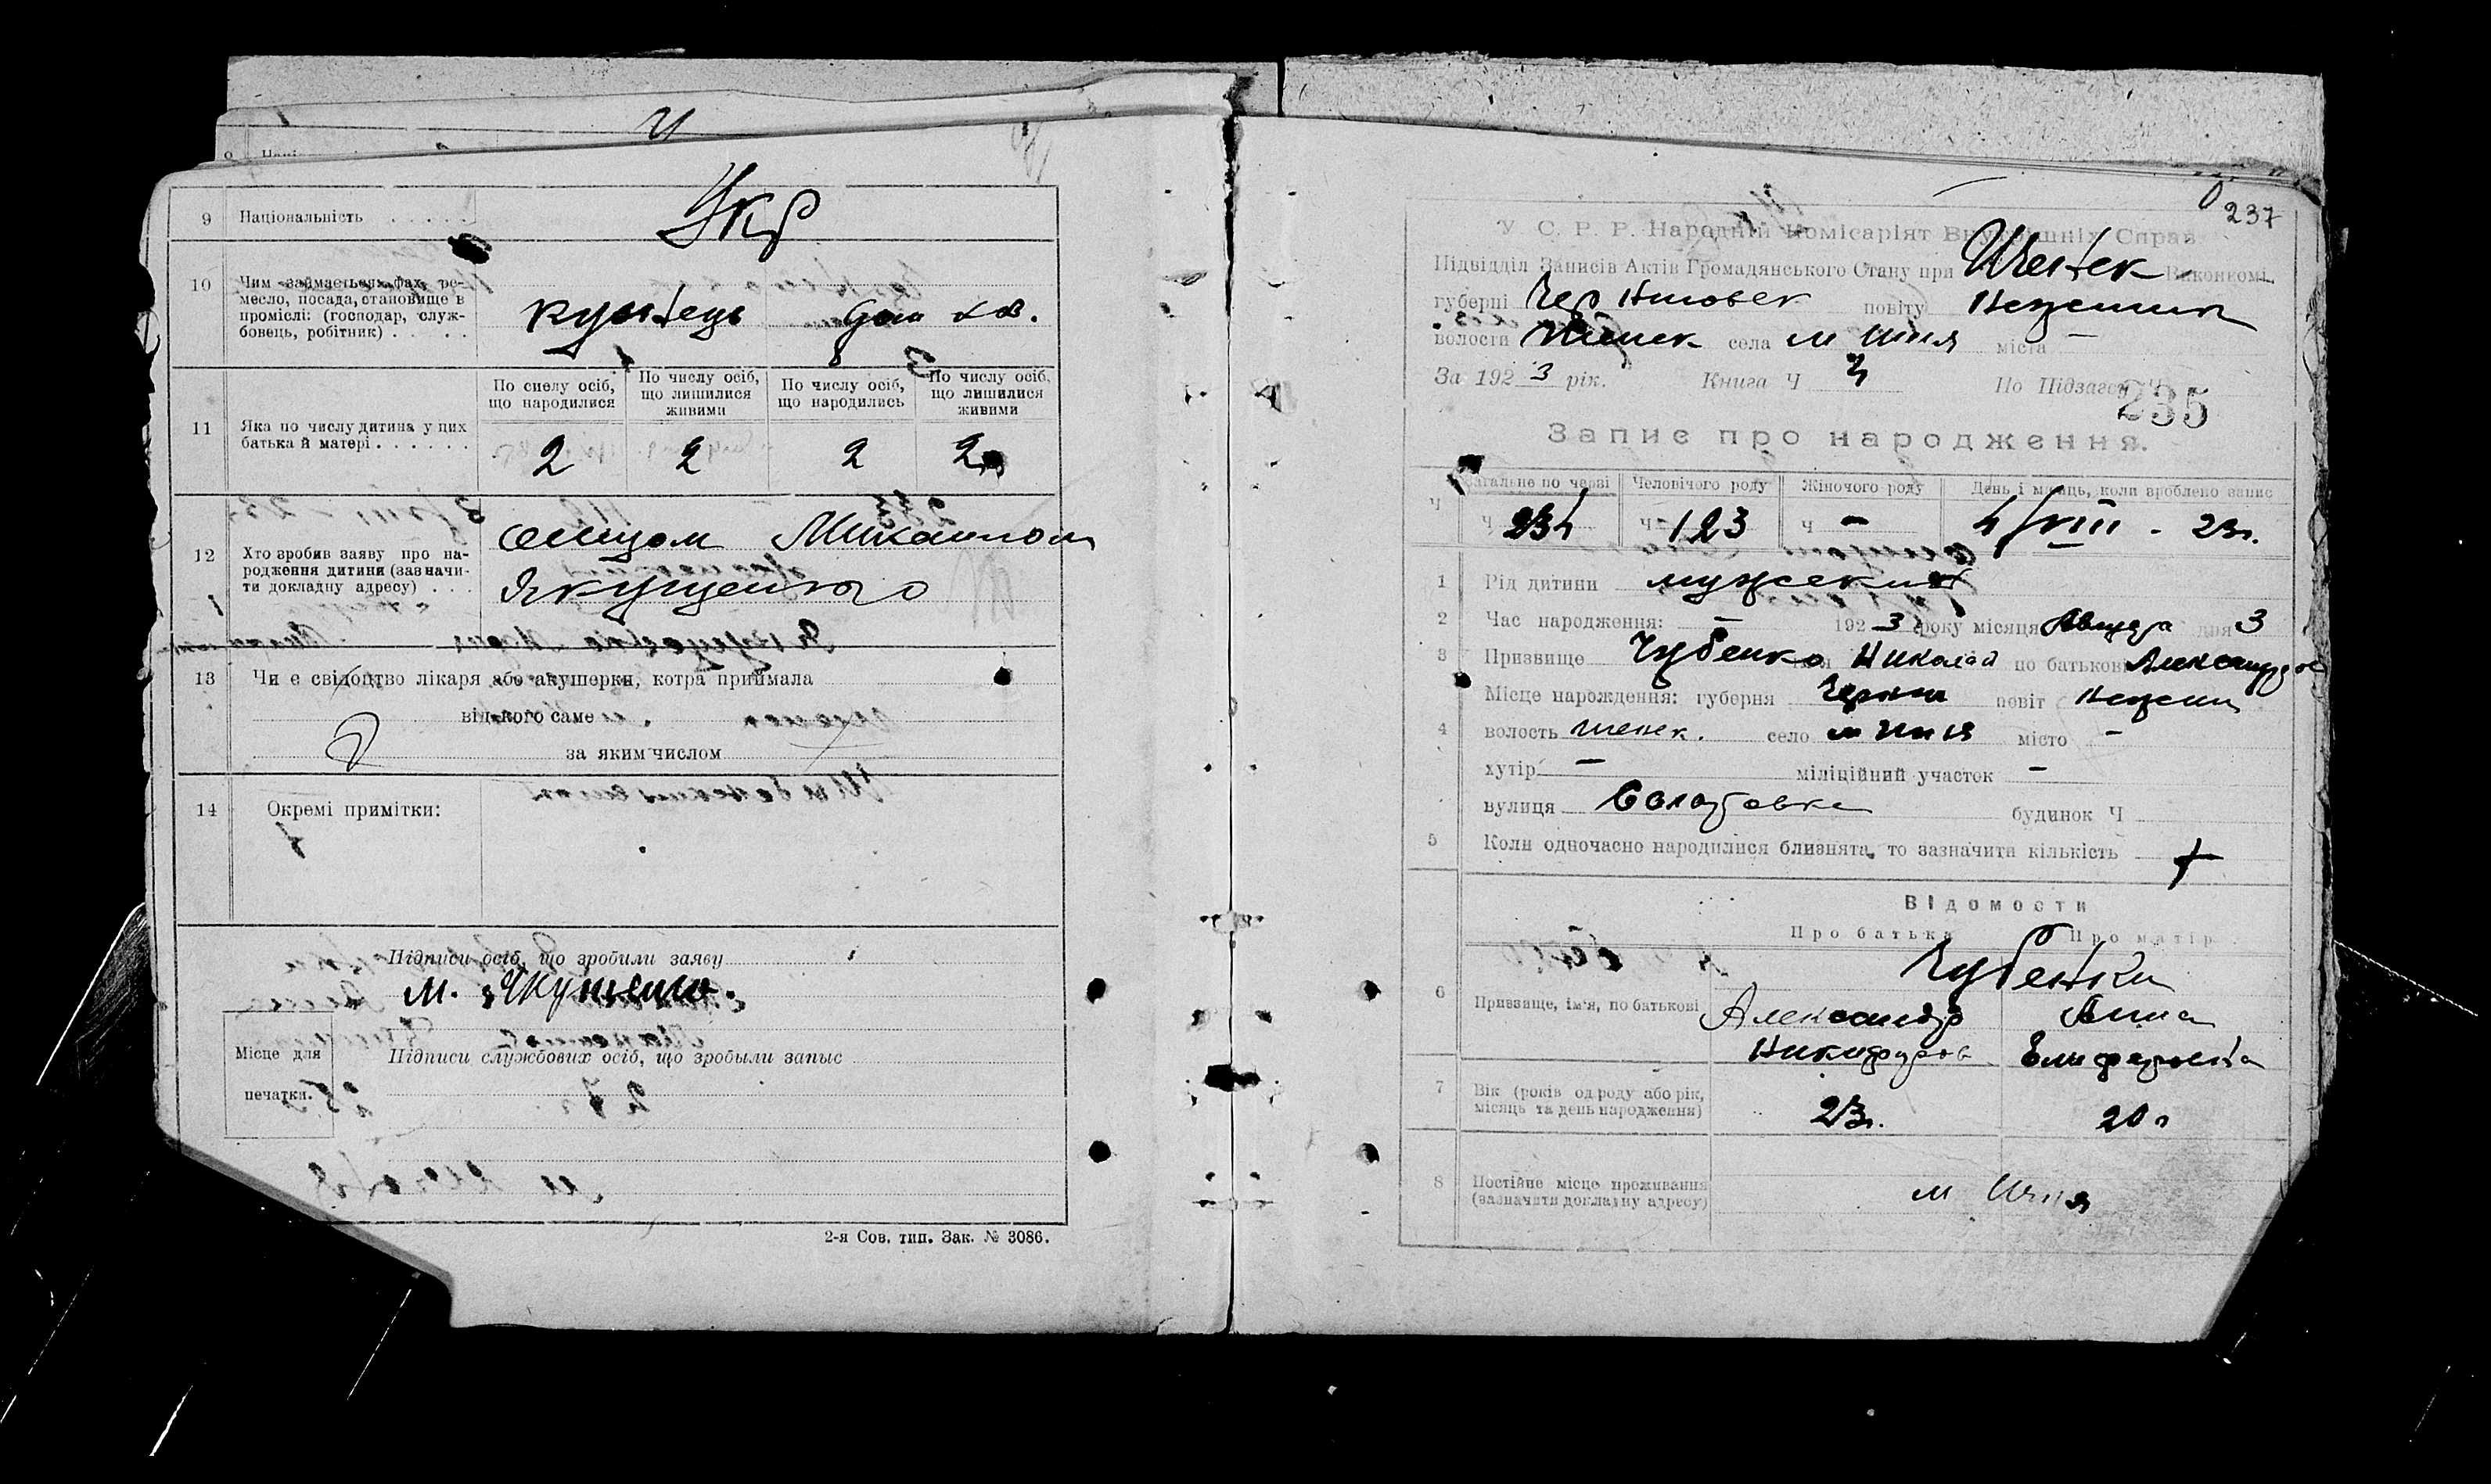 9 Національність . . . . . Укр
10 Чим займається: фах, ре-
месло, посада, становище в
проміслі: (господар, служ-
бовець, робітник) . . . .
кузнець дом хоз.
11 Яка по числу дитина у цих
батька й матері . . . . . .
По числу осіб, що народилися
По числу осіб, що лишилися живими
По числу осіб, що народились
По числу осіб, що лишилися живими
2 2 2 2
12 Хто зробив заяву про на-
родження дитини (зазначи-
ти докладну адресу) . . .
отцом Михаилом
Якущенко
13 Чи є свідоцтво лікаря або акушерки, котра приймала
від кого саме
за яким числом
14 Окремі примітки:
Підписи осіб, що зробили заяву
М. Якущенко.
Підписи службових осіб, що зробыли запыс
Місце для
печатки.
2-я Сов. тип. Зак. № 3086.
237
У. С. Р. Р. Народній Комісаріят Внутрішніх Справ
Підвідділ Записів Актів Громадянського Стану при Ичнек Виконкомі
губерні Черниговск повіту Нежинск
волости Ичнек села м Ичня міста —
За 1923 рік. Книга Ч 3 По Підзаг
235
Запис про народження.
Ч Загальне по черзі Человічого роду Жіночого роду День і місяць, коли зроблено запис
Ч 234 Ч 123 Ч - 4/VIII - 23г.
1 Рід дитини мужский
2 Час народження: — 1923 року місяця Августа дня 3
3 Призвище Чубенко Николай по батькові Александров
4 Місце нарождення: губерня Черниг повіт Нежин
волость Ичнек. село м Ичня місто -
хутір - міліційний участок -
вулиця будинок Ч
5 Коли одночасно народилися близнята, то зазначити кількість
Відомости
Про батька Про матір
Чубенки
6 Призвище, ім'я, по батькові Александр Анна
Никифоров Елиферовна
7 Вік (років од роду або рік,
місяць та день народження) 23г. 20 г
8 Постійне місце проживання
(зазначити докладну адресу) м Ичня